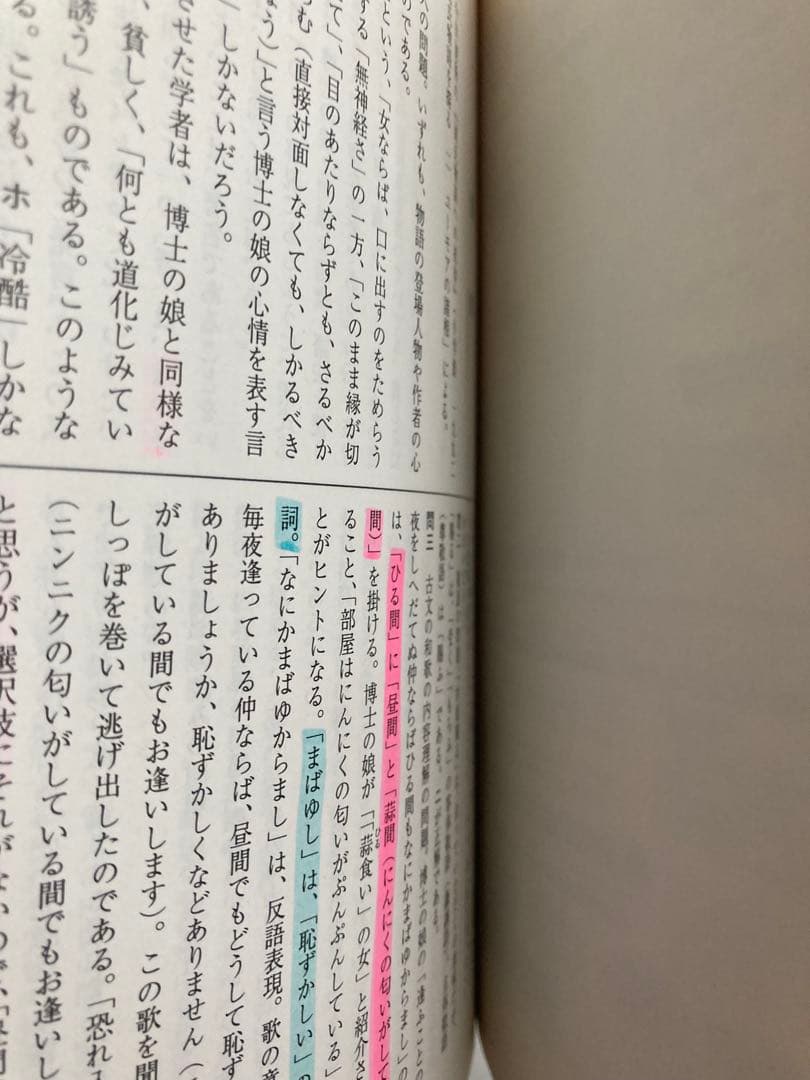 の問題。いずれも、物語の登場人物や作者の心
のである。
という、「女ならば、口に出すのをためらう
する「無神経さ」の一方、「このまま縁が切
て」、「目のあたりならずとも、さるべか
らむ(直接対面しなくても、しかるべき
う)」と言う博士の娘の心情を表す言
」しかないだろう。
させた学者は、博士の娘と同様な
、貧しく、「何とも道化じみてい
誘う」ものである。このような
る。これも、ホ「冷酷」しかな
問三 古文の和歌の内容理解の問題。博士の娘の「逢ふことの
夜をしへだてぬ仲ならばひる間もなにかまばゆからまし」の
は、「ひる間」に「昼間」と「蒜間(にんにくの匂いがして
間)」を掛ける。博士の娘が「「蒜食い」の女」と紹介さ
ひる
ること、「部屋はにんにくの匂いがぷんぷんしている」
とがヒントになる。「まばゆし」は、「恥ずかしい」の
詞。「なにかまばゆからまし」は、反語表現。歌の意
毎夜逢っている仲ならば、昼間でもどうして恥ず
ありましょうか、恥ずかしくなどありません(
がしている間でもお逢いします)。この歌を聞
しっぽを巻いて逃げ出したのである。「恐れ
(ニンニクの匂いがしている間でもお逢いし
と思うが、選択肢にそれがないので、